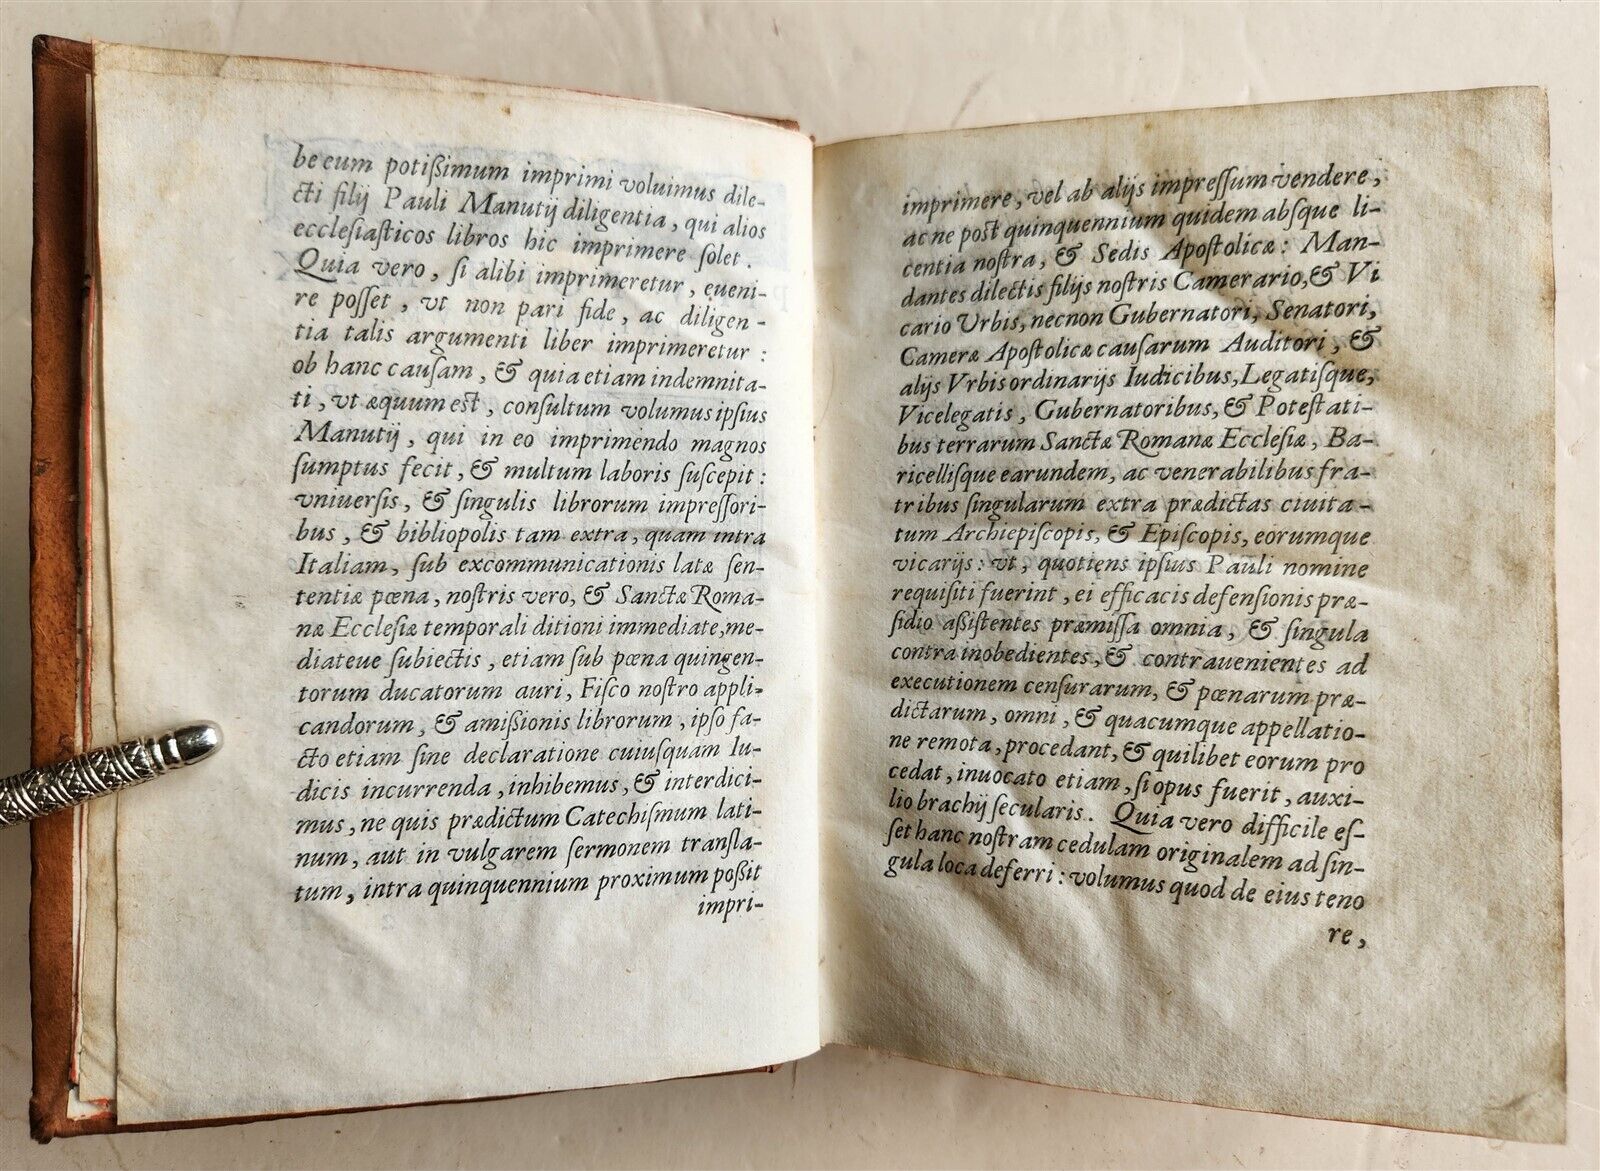 be eum potißimum imprimi voluimus dile-
cti filij Pauli Manutij diligentia, qui alios
eccleſiaſticos libros hic imprimere ſolet.
Quia vero, ſi alibi imprimeretur, eueni-
re poſſet, vt non pari fide, ac diligen-
tia talis argumenti liber imprimeretur:
ob hanc cauſam, & quia etiam indemnita-
ti, vt æquum est, conſultum volumus ipſius
Manutij, qui in eo imprimendo magnos
ſumptus fecit, & multum laboris ſuſcepit:
vniuerſis, & ſingulis librorum impreſſori-
bus, & bibliopolis tam extra, quam intra
Italiam, ſub excommunicationis latæ ſen-
tentiæ pœna, noſtris vero, & Sanctæ Roma-
næ Eccleſiæ temporali ditioni immediate, me-
diateue ſubiectis, etiam ſub pœna quingen-
torum ducatorum auri, Fiſco noſtro appli-
candorum, & amißionis librorum, ipſo fa-
cto etiam ſine declaratione cuiuſquam Iu-
dicis incurrenda, inhibemus, & interdici-
mus, ne quis prædictum Catechiſmum lati-
num, aut in vulgarem ſermonem tranſla-
tum, intra quinquennium proximum poßit
impri-
imprimere, vel ab alijs impreſſum vendere,
ac ne post quinquennium quidem abſque li-
centia noſtra, & Sedis Apoſtolicæ: Man-
dantes dilectis filijs noſtris Camerario, & Vi
cario Vrbis, necnon Gubernatori, Senatori,
Cameræ Apoſtolicæ cauſarum Auditori, &
alijs Vrbis ordinarijs Iudicibus, Legatiſque,
Vicelegatis, Gubernatoribus, & Poteſtati-
bus terrarum Sanctæ Romanæ Eccleſiæ, Ba-
ricelliſque earundem, ac venerabilibus fra-
tribus ſingularum extra prædictas ciuita-
tum Archiepiſcopis, & Epiſcopis, eorumque
vicarijs: vt, quotiens ipſius Pauli nomine
requiſiti fuerint, ei efficacis defenſionis præ-
ſidio aßiſtentes præmiſſa omnia, & ſingula
contra inobedientes, & contrauenientes ad
executionem cenſurarum, & pœnarum præ-
dictarum, omni, & quacumque appellatio-
ne remota, procedant, & quilibet eorum pro
cedat, inuocato etiam, ſi opus fuerit, auxi-
lio brachij ſecularis. Quia vero difficile eſ-
ſet hanc noſtram cedulam originalem ad ſin-
gula loca deferri: volumus quod de eius teno
re,